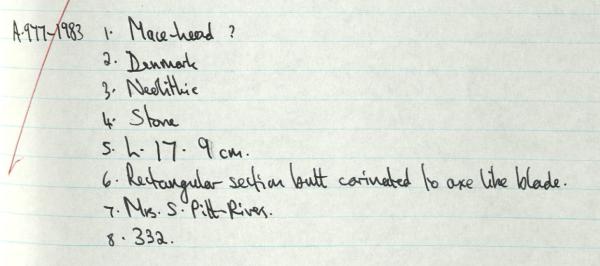 A.977-1983 1. Mace-head ?
2. Denmark
3. Neolithic
4. Stone
5. L. 17.9 cm.
6. Rectangular section butt carinated to axe like blade.
7. Mrs. S. Pitt-Rivers.
8. 332.